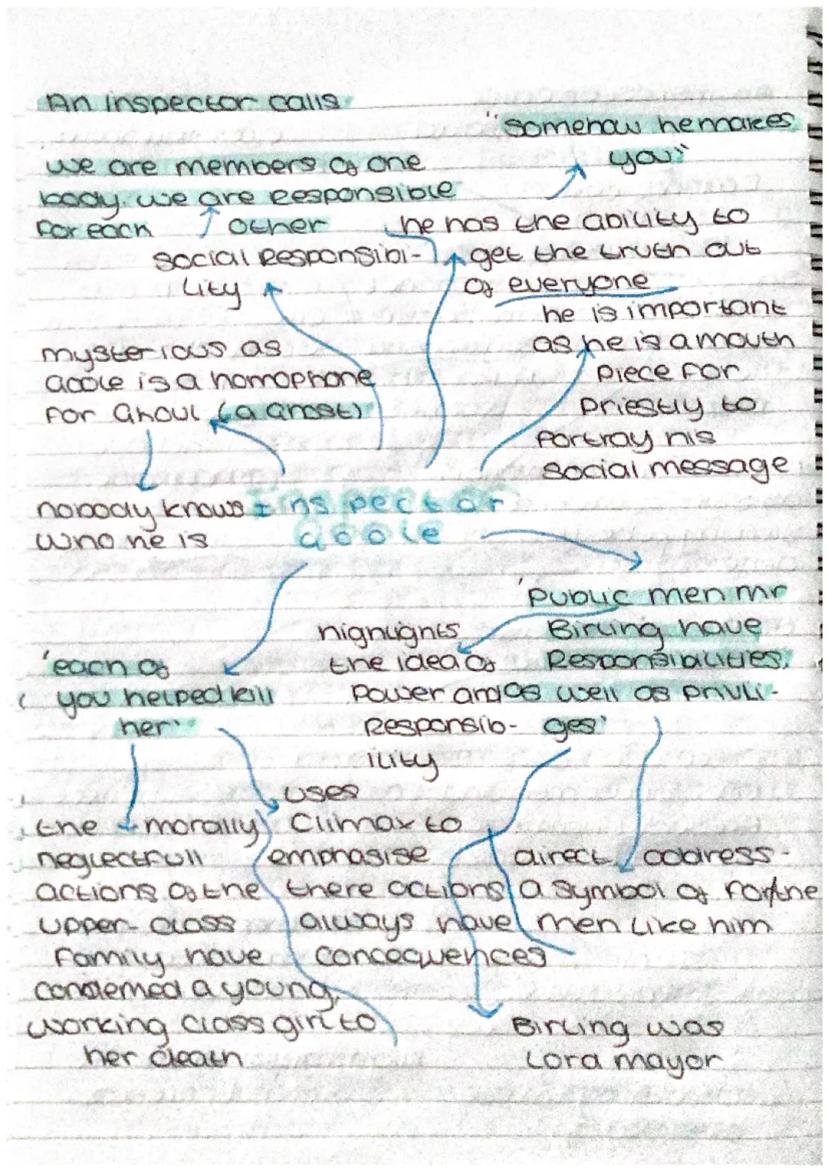 An inspector calls
"somehow he makes
you"
we are members of one
body. we are Responsible
for each other
he has the ability to
get the truth out
of everyone
social Responsibi-
lity
he is important
as he is a mouth
piece for
Priestly to
portray his
social message
mysterious as
Goole is a homophone
for Ghoul (a Ghost)
nobody knows
who he is
Inspector
Goole
'Public men mr
Birling have
Responsibilities,
as well as privli-
ges'
highlights
the idea of
Power and
Responsib-
ility
'each of
you helped kill
her'
uses
Climax to
emphasise
there actions
always have
concequences
the morally
neglectfull
actions of the
upper-class
family have
condemed a young,
working class girl to
her death
direct address -
a symbol of for the
men like him
Birling was
Lord mayor